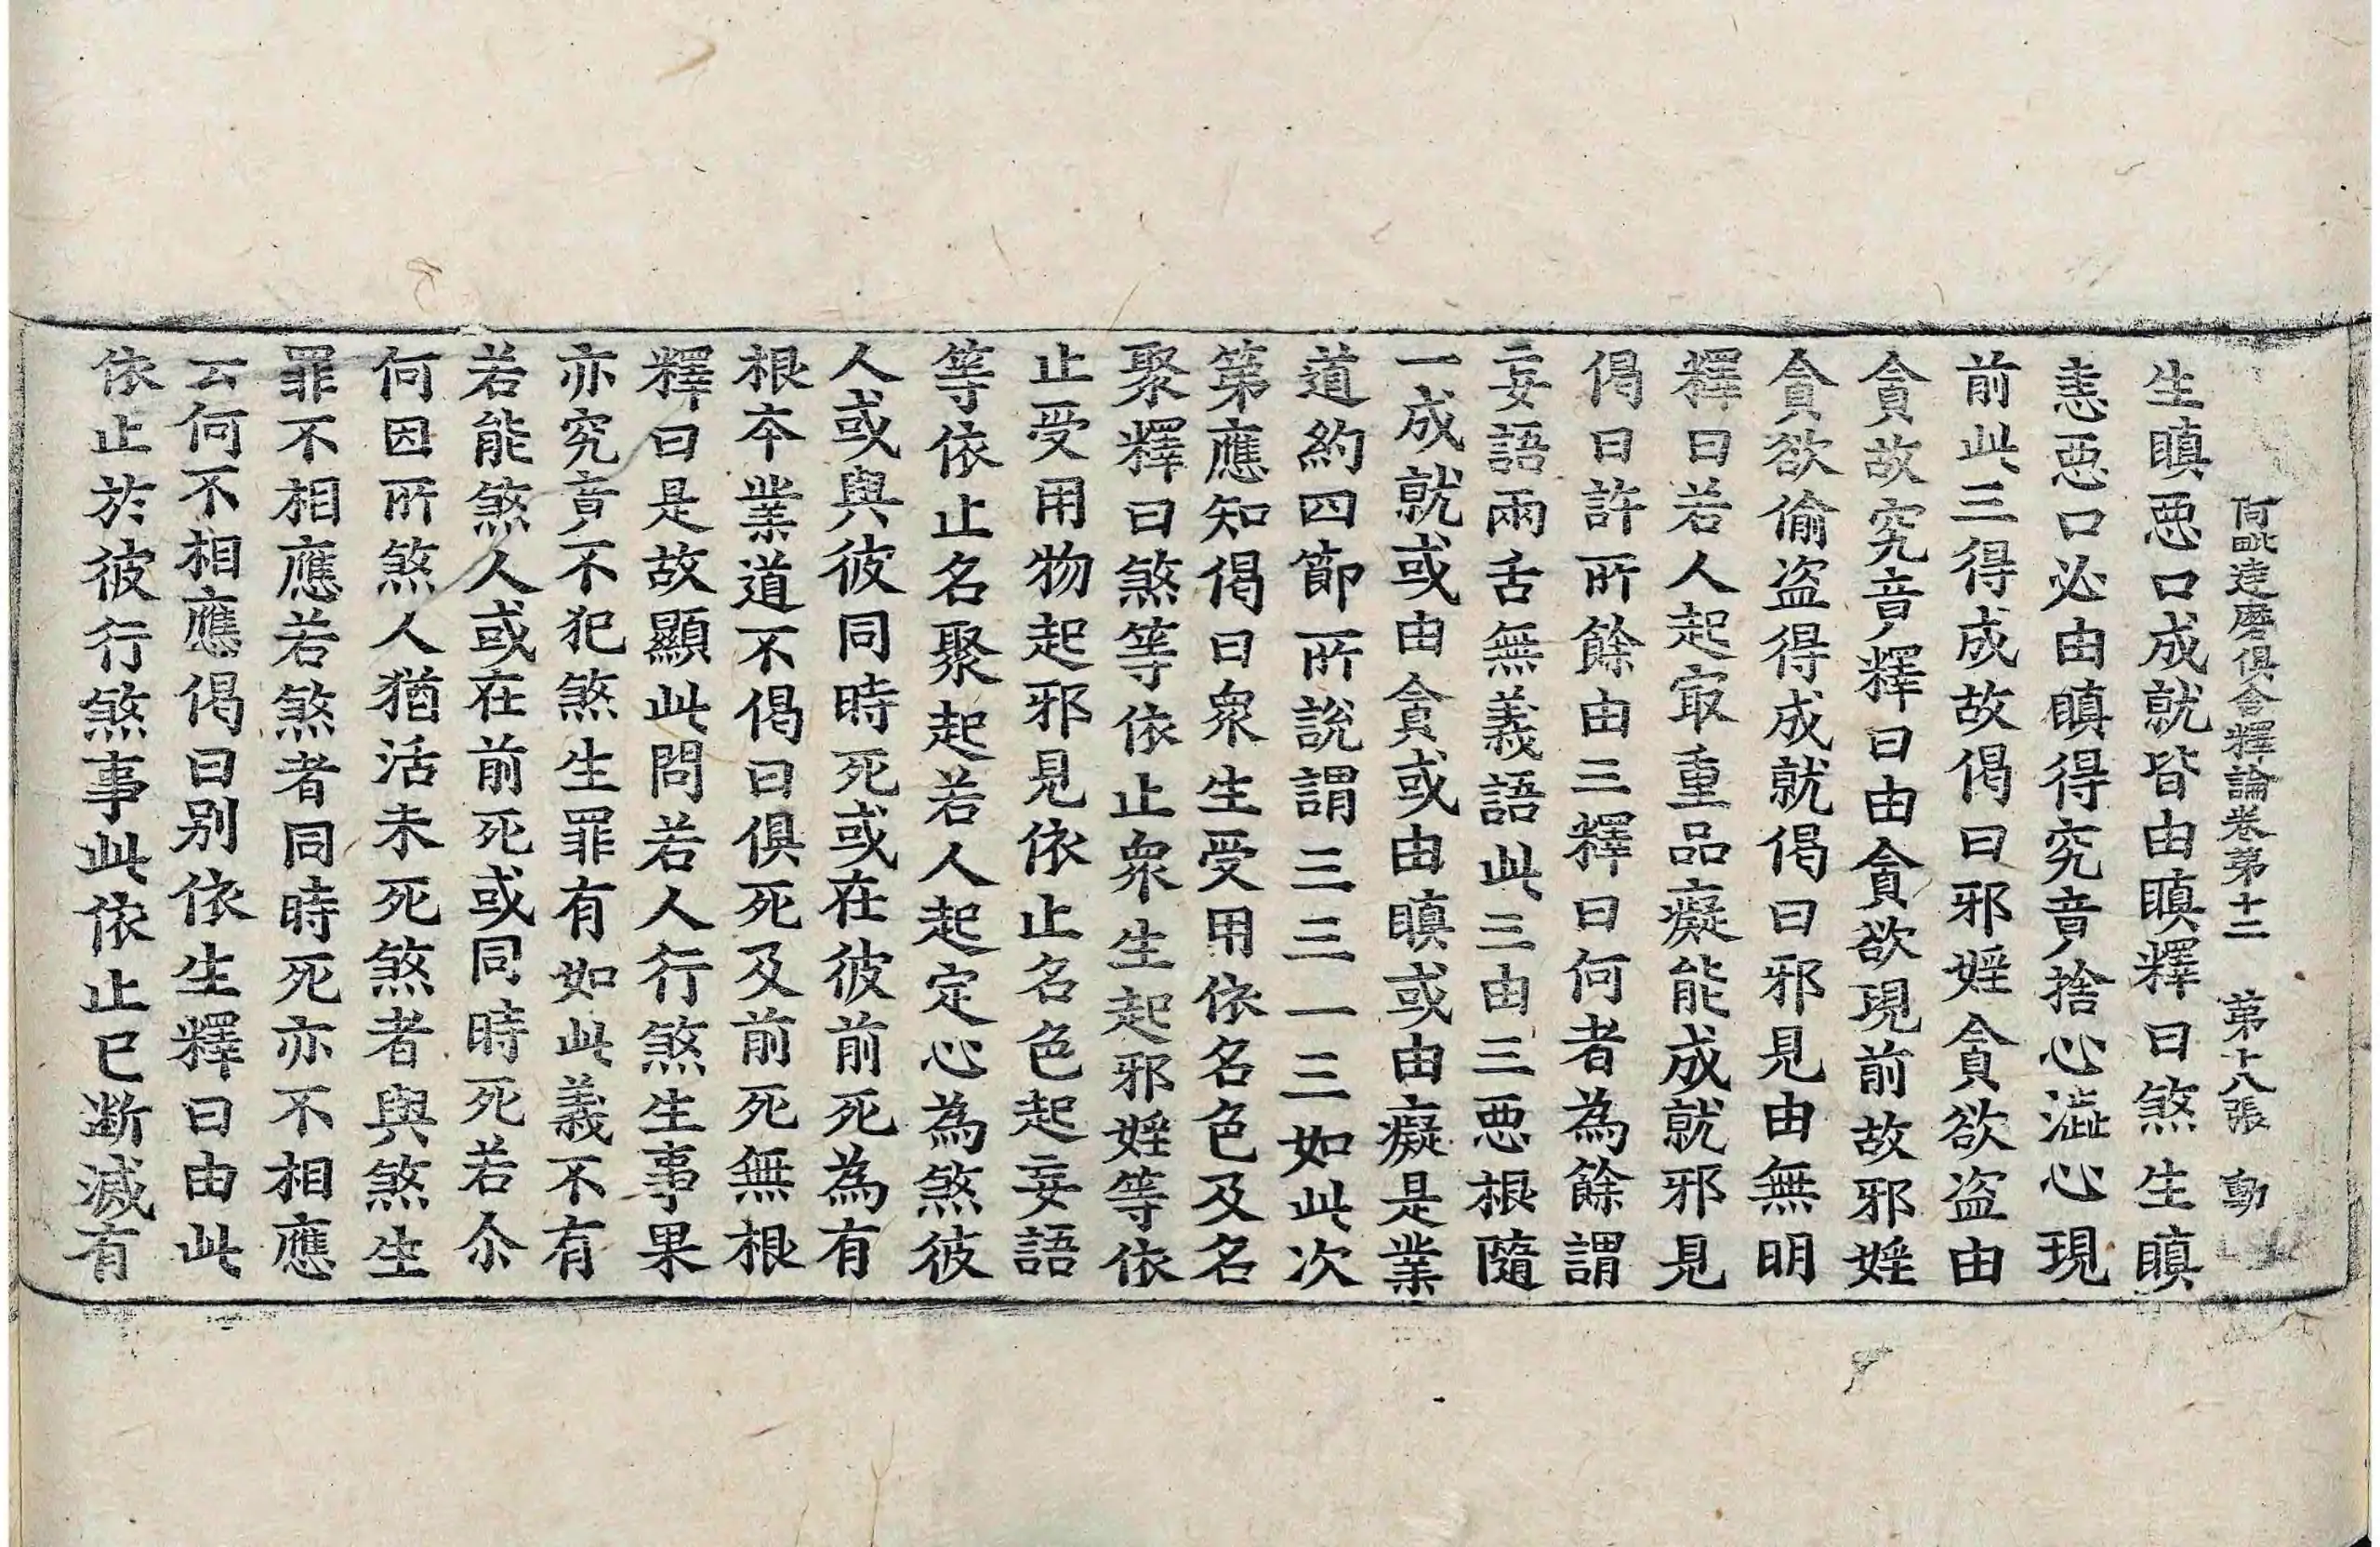 阿毗達磨俱舍釋論卷第十二 第十八張 動
生瞋惡口成就皆由瞋釋曰煞生瞋
恚惡口必由瞋得究竟捨心澁心現
前此三得成故偈曰邪婬貪欲盜由
貪故究竟釋曰由貪欲現前故邪婬
貪欲偷盜得成就偈曰邪見由無明
釋曰若人起㝡重品癡能成就邪見
偈曰許所餘由三釋曰何者為餘謂
妄語兩舌無義語此三由三惡根隨
一成就或由貪或由瞋或由癡是業
道約四節所說謂三三一三如此次
第應知偈曰衆生受用依名色及名
聚釋曰煞等依止衆生起邪婬等依
止受用物起邪見依止名色起妄語
等依止名聚起若人起定心為煞彼
人或與彼同時死或在彼前死為有
根本業道不偈曰俱死及前死無根
釋曰是故顯此問若人行煞生事果
亦究竟不犯煞生罪有如此義不有
若能煞人或在前死或同時死若尒
何因所煞人猶活未死煞者與煞生
罪不相應若煞者同時死亦不相應
云何不相應偈曰別依生釋曰由此
依止於彼行煞事此依止已斷滅有